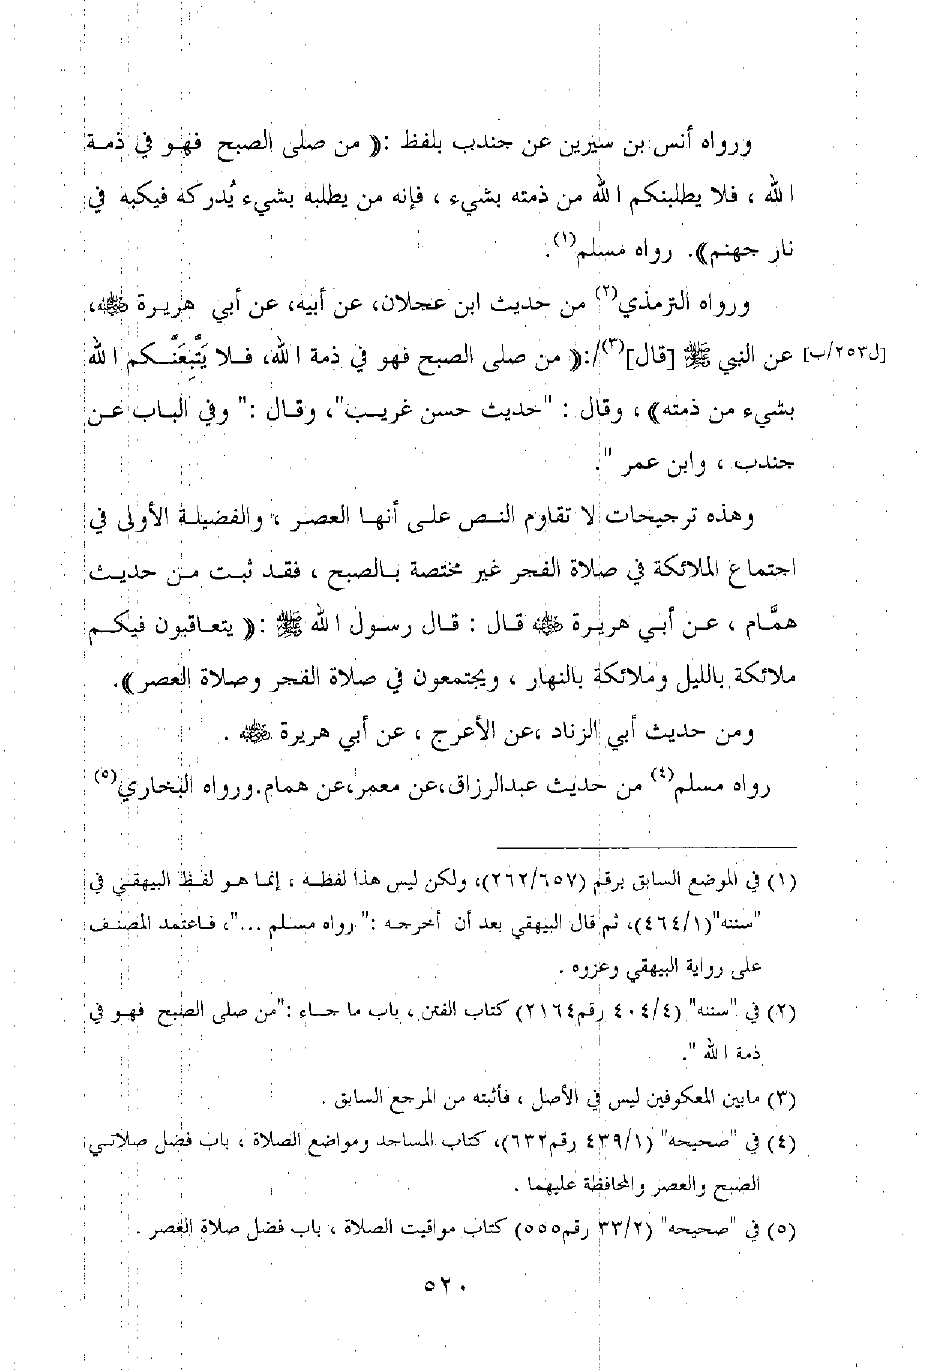 ورواه أنس بن سيرين عن جندب بلفظ :﴿ من صلى الصبح فهو في ذمة
الله ، فلا يطلبنكم الله من ذمته بشيء ، فإنه من يطلبه بشيء يُدركه فيكبه في
نار جهنم﴾. رواه مسلم(١).
ورواه الترمذي(٢) من حديث ابن عجلان، عن أبيه، عن أبي هريرة ﷺ،
[ل٢٥٣/ب] عن النبي ﷺ [قال](٣)/:﴿ من صلى الصبح فهو في ذمة الله، فلا يَتَّبِعَنَّكم الله
بشيء من ذمته﴾ ، وقال : "حديث حسن غريب"، وقال :" وفي الباب عن
جندب ، وابن عمر ".
وهذه ترجيحات لا تقاوم النص على أنها العصر ، والفضيلة الأولى في
اجتماع الملائكة في صلاة الفجر غير مختصة بالصبح ، فقد ثبت من حديث
همَّام ، عن أبي هريرة رضي الله عنه قال : قال رسول الله ﷺ :﴿ يتعاقبون فيكم
ملائكة بالليل وملائكة بالنهار ، ويجتمعون في صلاة الفجر وصلاة العصر﴾.
ومن حديث أبي الزناد ،عن الأعرج ، عن أبي هريرة رضي الله عنه .
رواه مسلم(٤) من حديث عبدالرزاق،عن معمر،عن همام.ورواه البخاري(٥)
(١) في الموضع السابق برقم (٢٦٢/٦٥٧)، ولكن ليس هذا لفظه ، إنما هو لفظ البيهقي في
"سننه"(٤٦٤/١)، ثم قال البيهقي بعد أن أخرجه :" رواه مسلم ..."، فاعتمد المصنف
على رواية البيهقي وعزوه .
(٢) في "سننه" (٤٠٤/٤ رقم٢١٦٤) كتاب الفتن ، باب ما جاء :"من صلى الصبح فهو في
ذمة الله ".
(٣) مابين المعكوفين ليس في الأصل ، فأثبته من المرجع السابق .
(٤) في "صحيحه" (٤٣٩/١ رقم٦٣٢)، كتاب المساجد ومواضع الصلاة ، باب فضل صلاتي
الصبح والعصر والمحافظة عليهما .
(٥) في "صحيحه" (٣٣/٢ رقم٥٥٥) كتاب مواقيت الصلاة ، باب فضل صلاة العصر .
٥٢٠